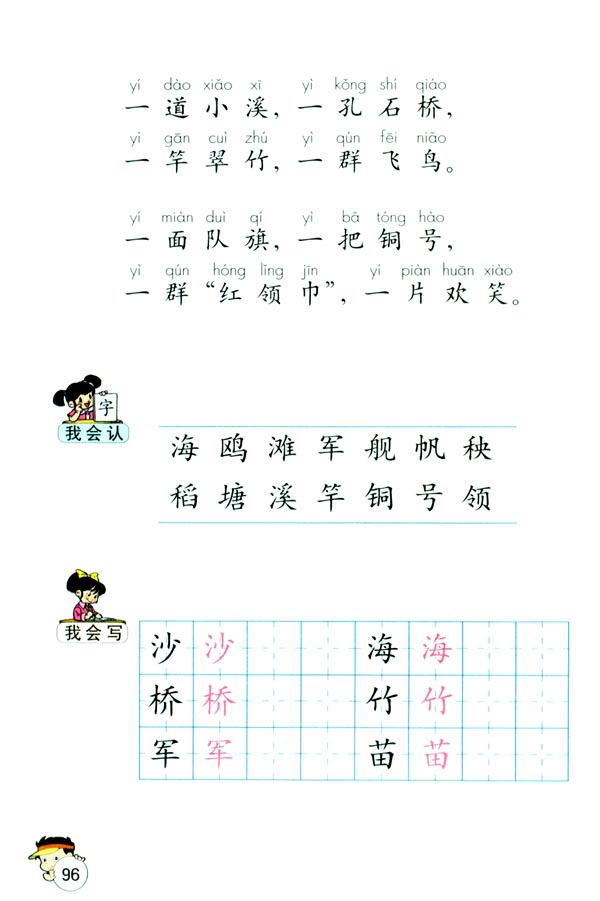 yí dào xiǎo xī yì kǒng shí qiáo
一道小溪，一孔石桥，
yì gān cuì zhú yì qún fēi niǎo
一竿翠竹，一群飞鸟。
yí miàn duì qí yì bǎ tóng hào
一面队旗，一把铜号，
yì qún hóng lǐng jīn yí piàn huān xiào
一群“红领巾”，一片欢笑。
字
我会认
海鸥滩军舰帆秧
稻塘溪竿铜号领
我会写
沙沙海海
桥桥竹竹
军军苗苗
96